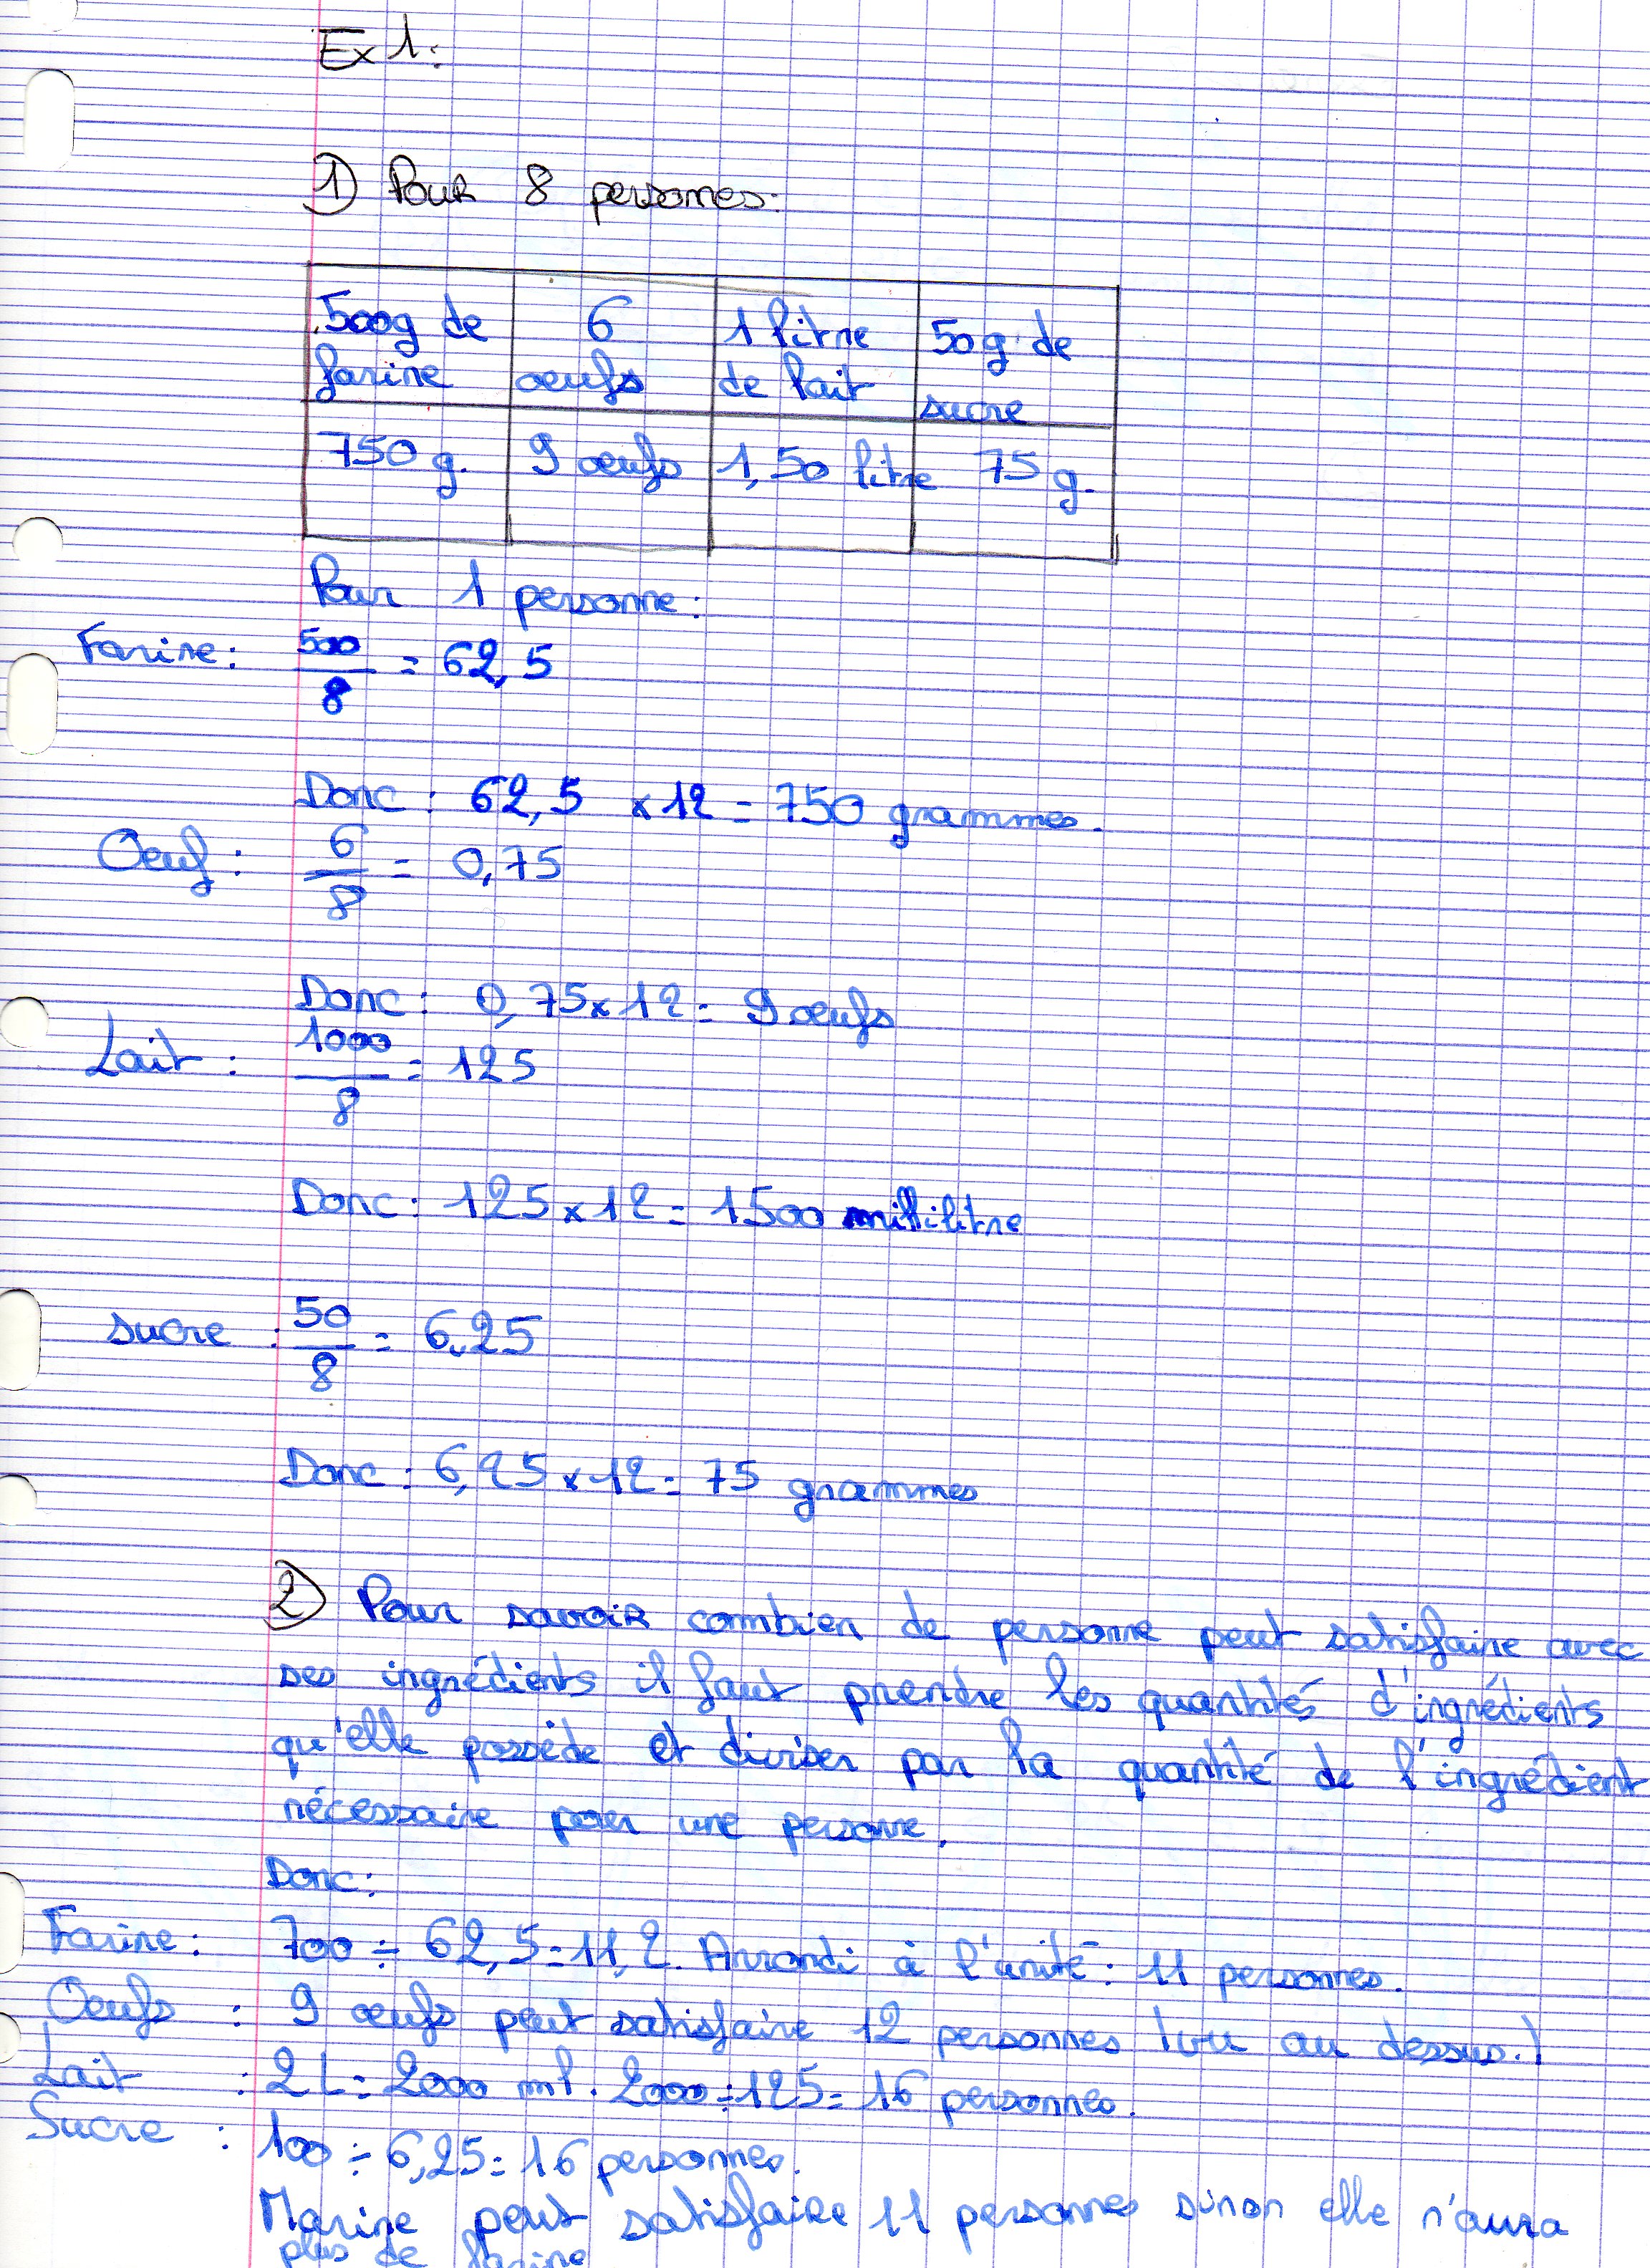 Ex 1:
1) Pour 8 personnes:
500g de farine 6 oeufs 1 litre de lait 50g de sucre
750 g. 9 oeufs 1,50 litre 75 g.
Pour 1 personne:
Farine: 500/8 = 62,5
Donc: 62,5 x 12 = 750 grammes.
Oeuf: 6/8 = 0,75
Donc: 0,75 x 12 = 9 oeufs
Lait: 1000/8 = 125
Donc: 125 x 12 = 1500 millilitre
sucre: 50/8 = 6,25
Donc: 6,25 x 12 = 75 grammes
2) Pour savoir combien de personne peut satisfaire avec
ses ingrédients il faut prendre les quantités d'ingrédients
qu'elle possède et diviser par la quantité de l'ingrédient
nécessaire pour une personne.
Donc:
Farine: 700 ÷ 62,5 = 11,2. Arrondi à l'unité: 11 personnes.
Oeufs: 9 oeufs peut satisfaire 12 personnes (vu au dessus.)
Lait: 2L = 2000 ml. 2000 ÷ 125 = 16 personnes.
Sucre: 100 ÷ 6,25 = 16 personnes.
Marine peut satisfaire 11 personnes sinon elle n'aura
plus de farine